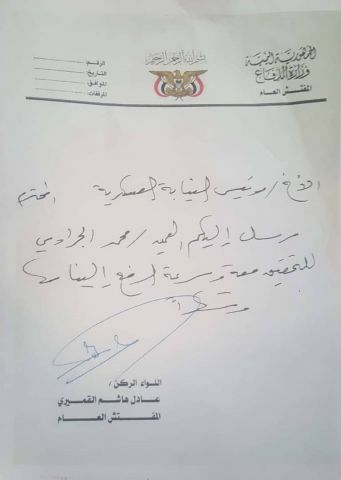 الجمهورية اليمنية
وزارة الدفاع
المفتش العام
بسم الله الرحمن الرحيم
الرقم:
التاريخ:
الموافق:
المرفقات:
الأخ/ رئيس النيابة العسكرية المحترم
مرسل إليكم العميد/ محمد الجرادي
للتحقيق معه وسرعة الرفع إلينا
وشكراً
اللواء الركن/
عادل هاشم القميري
المفتش العام